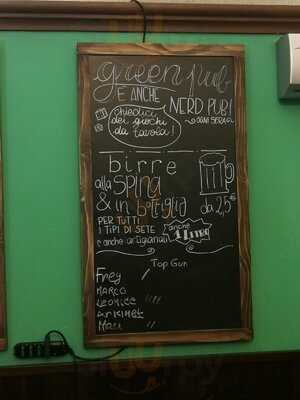 green pub
È ANCHE
NERD PUB!
~ OGNI SERA ~
chiedici
dei giochi
da tavola!
birre
alla SPINA
& in bottiglia
da 2,5€
PER TUTTI
I TIPI DI SETE
e anche artigianali
anche
1 LITRO
Top Gun
Frey
MARCO
Leonice